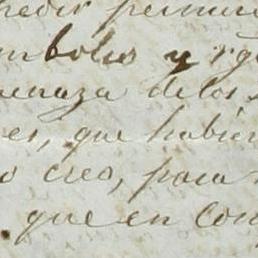 pedir permiso
mbolso y rg
enaza de los
es, que habien
o creo, para
que en con